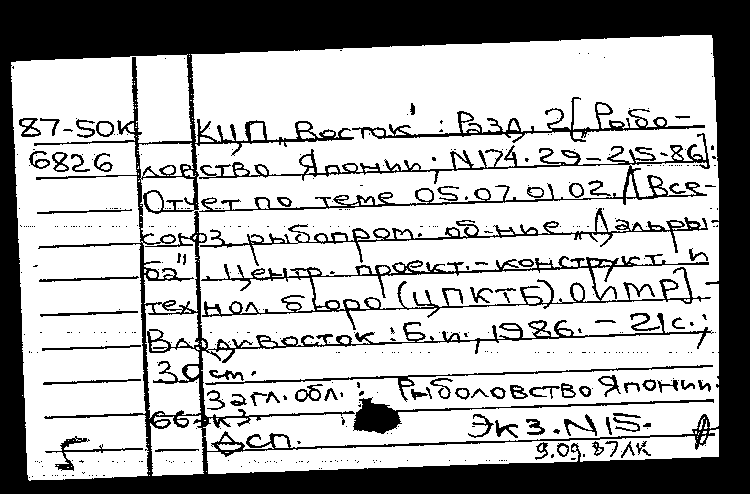 87-50К КЦП „Восток" : Разд. 2 [„Рыбо-
6826 ловство Японии ; N174.29-215-86]:
Отчет по теме 05.07.01.02. / [Все-
союз. рыбопром. об-ние „Дальры-
ба". Центр. проект.-конструкт. и
технол. бюро (ЦПКТБ). ОНМР]. -
Владивосток : Б.и., 1986. - 21с.;
30 см.
Загл. обл. : Рыболовство Японии.
66 экз.
ДСП. Экз. N15.
9.09.87 ЛК